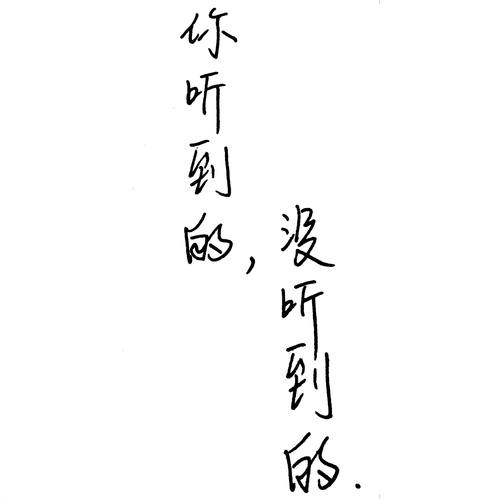 你听到的,
没听到的.